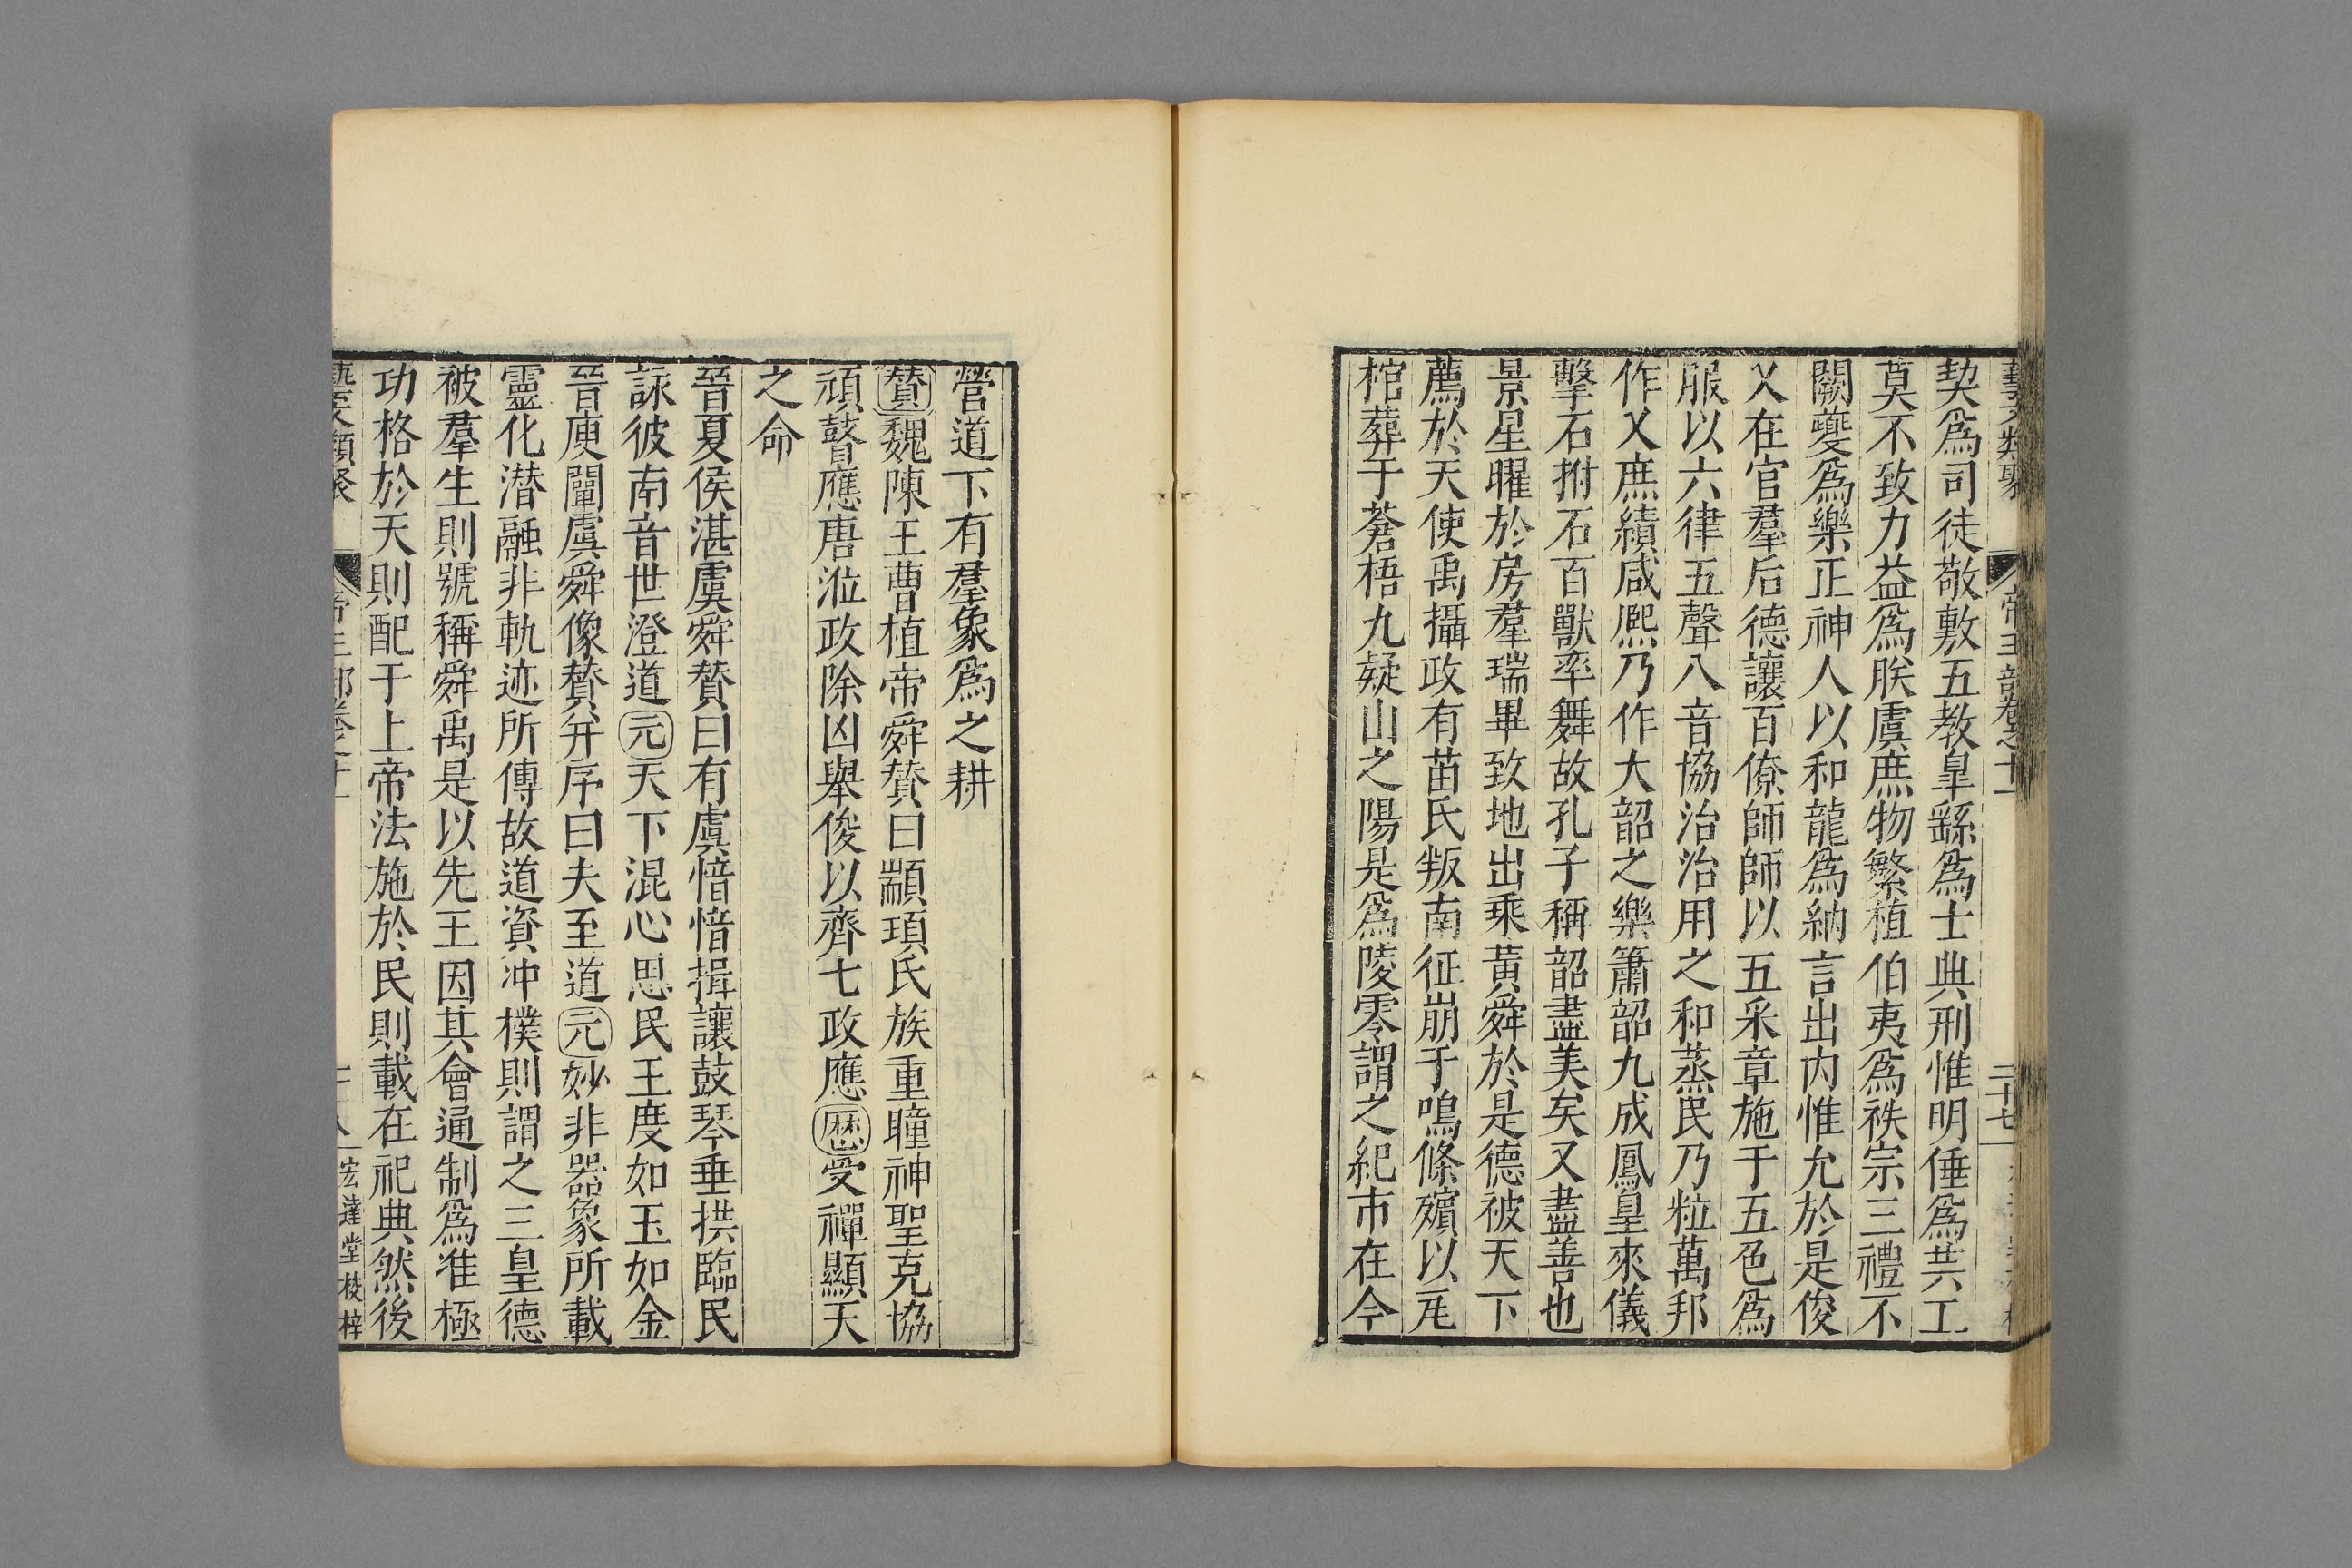 藝文類聚 帝王部卷之十一 二十七
契爲司徒敬敷五教臯繇爲士典刑惟明倕爲共工
莫不致力益爲朕虞庶物繁植伯夷爲秩宗三禮不
闕夔爲樂正神人以和龍爲納言出内惟允於是俊
乂在官羣后德讓百僚師師以五采章施于五色爲
服以六律五聲八音協治治用之和蒸民乃粒萬邦
作乂庶績咸熈乃作大韶之樂簫韶九成鳳皇來儀
擊石拊石百獸率舞故孔子稱韶盡美矣又盡善也
景星曜於房羣瑞畢致地出乘黃舜於是德被天下
薦於天使禹攝政有苗氏叛南征崩于鳴條殯以瓦
棺葬于蒼梧九疑山之陽是爲陵零謂之紀市在今
營道下有羣象爲之耕
贊魏陳王曹植帝舜贊曰顓頊氏族重瞳神聖克協
頑瞽應唐涖政除凶舉俊以齊七政應歷受禪顯天
之命
晉夏侯湛虞舜贊曰有虞愔愔揖讓鼓琴垂拱臨民
詠彼南音世澄道元天下混心思民王度如玉如金
晉庾闡虞舜像贊并序曰夫至道元妙非器象所載
靈化潜融非軌迹所傳故道資冲樸則謂之三皇德
被羣生則號稱舜禹是以先王因其會通制爲准極
功格於天則配于上帝法施於民則載在祀典然後
藝文類聚 帝王部卷之十一 二十八 宏達堂校梓